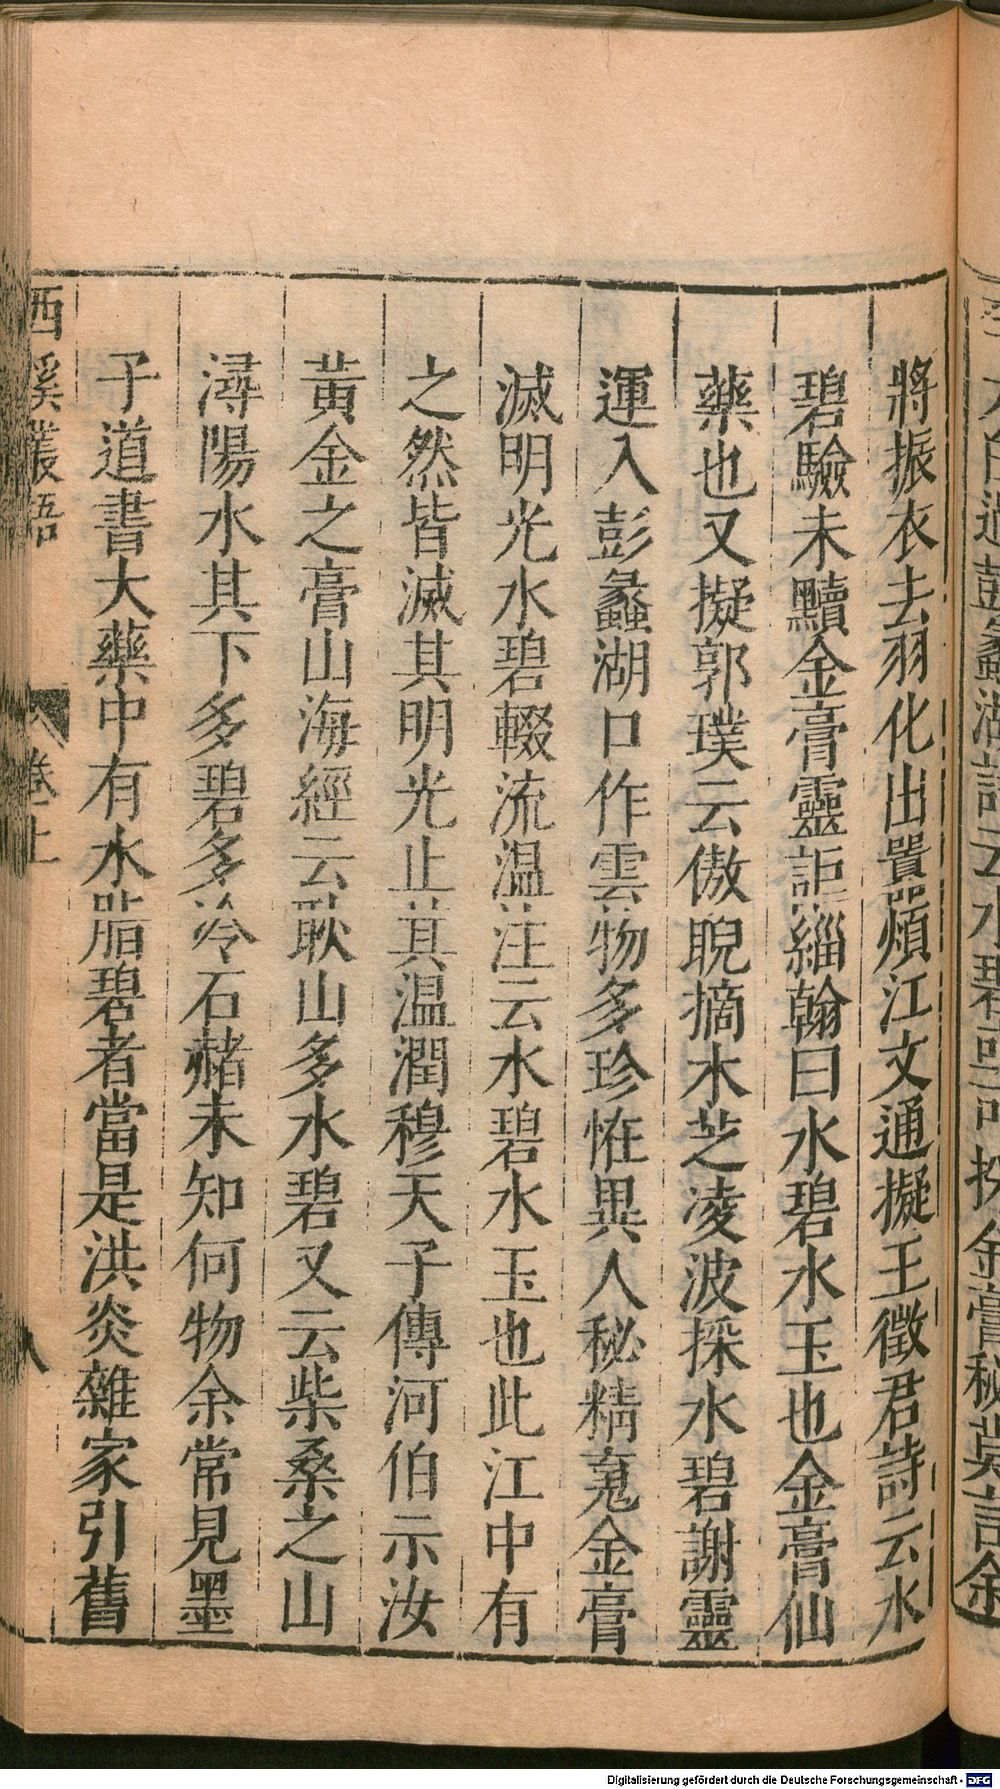 將振衣去羽化出嚚煩江文通擬王徵君詩云水
碧驗未黷金膏靈詎緇翰曰水碧水玉也金膏仙
藥也又擬郭璞云傲睨摘木芝凌波採水碧謝靈
運入彭蠡湖口作雲物多珍恠異人秘精䰟金膏
滅明光水碧輟流温注云水碧水玉也此江中有
之然皆滅其明光止其温潤穆天子傳河伯示汝
黃金之膏山海經云耿山多水碧又云柴桑之山
潯陽水其下多碧多冷石赭未知何物余常見墨
子道書大藥中有水脂碧者當是洪炎雜家引舊
西溪叢語
卷上
八
Digitalisierung gefördert durch die Deutsche Forschungsgemeinschaft - DFG